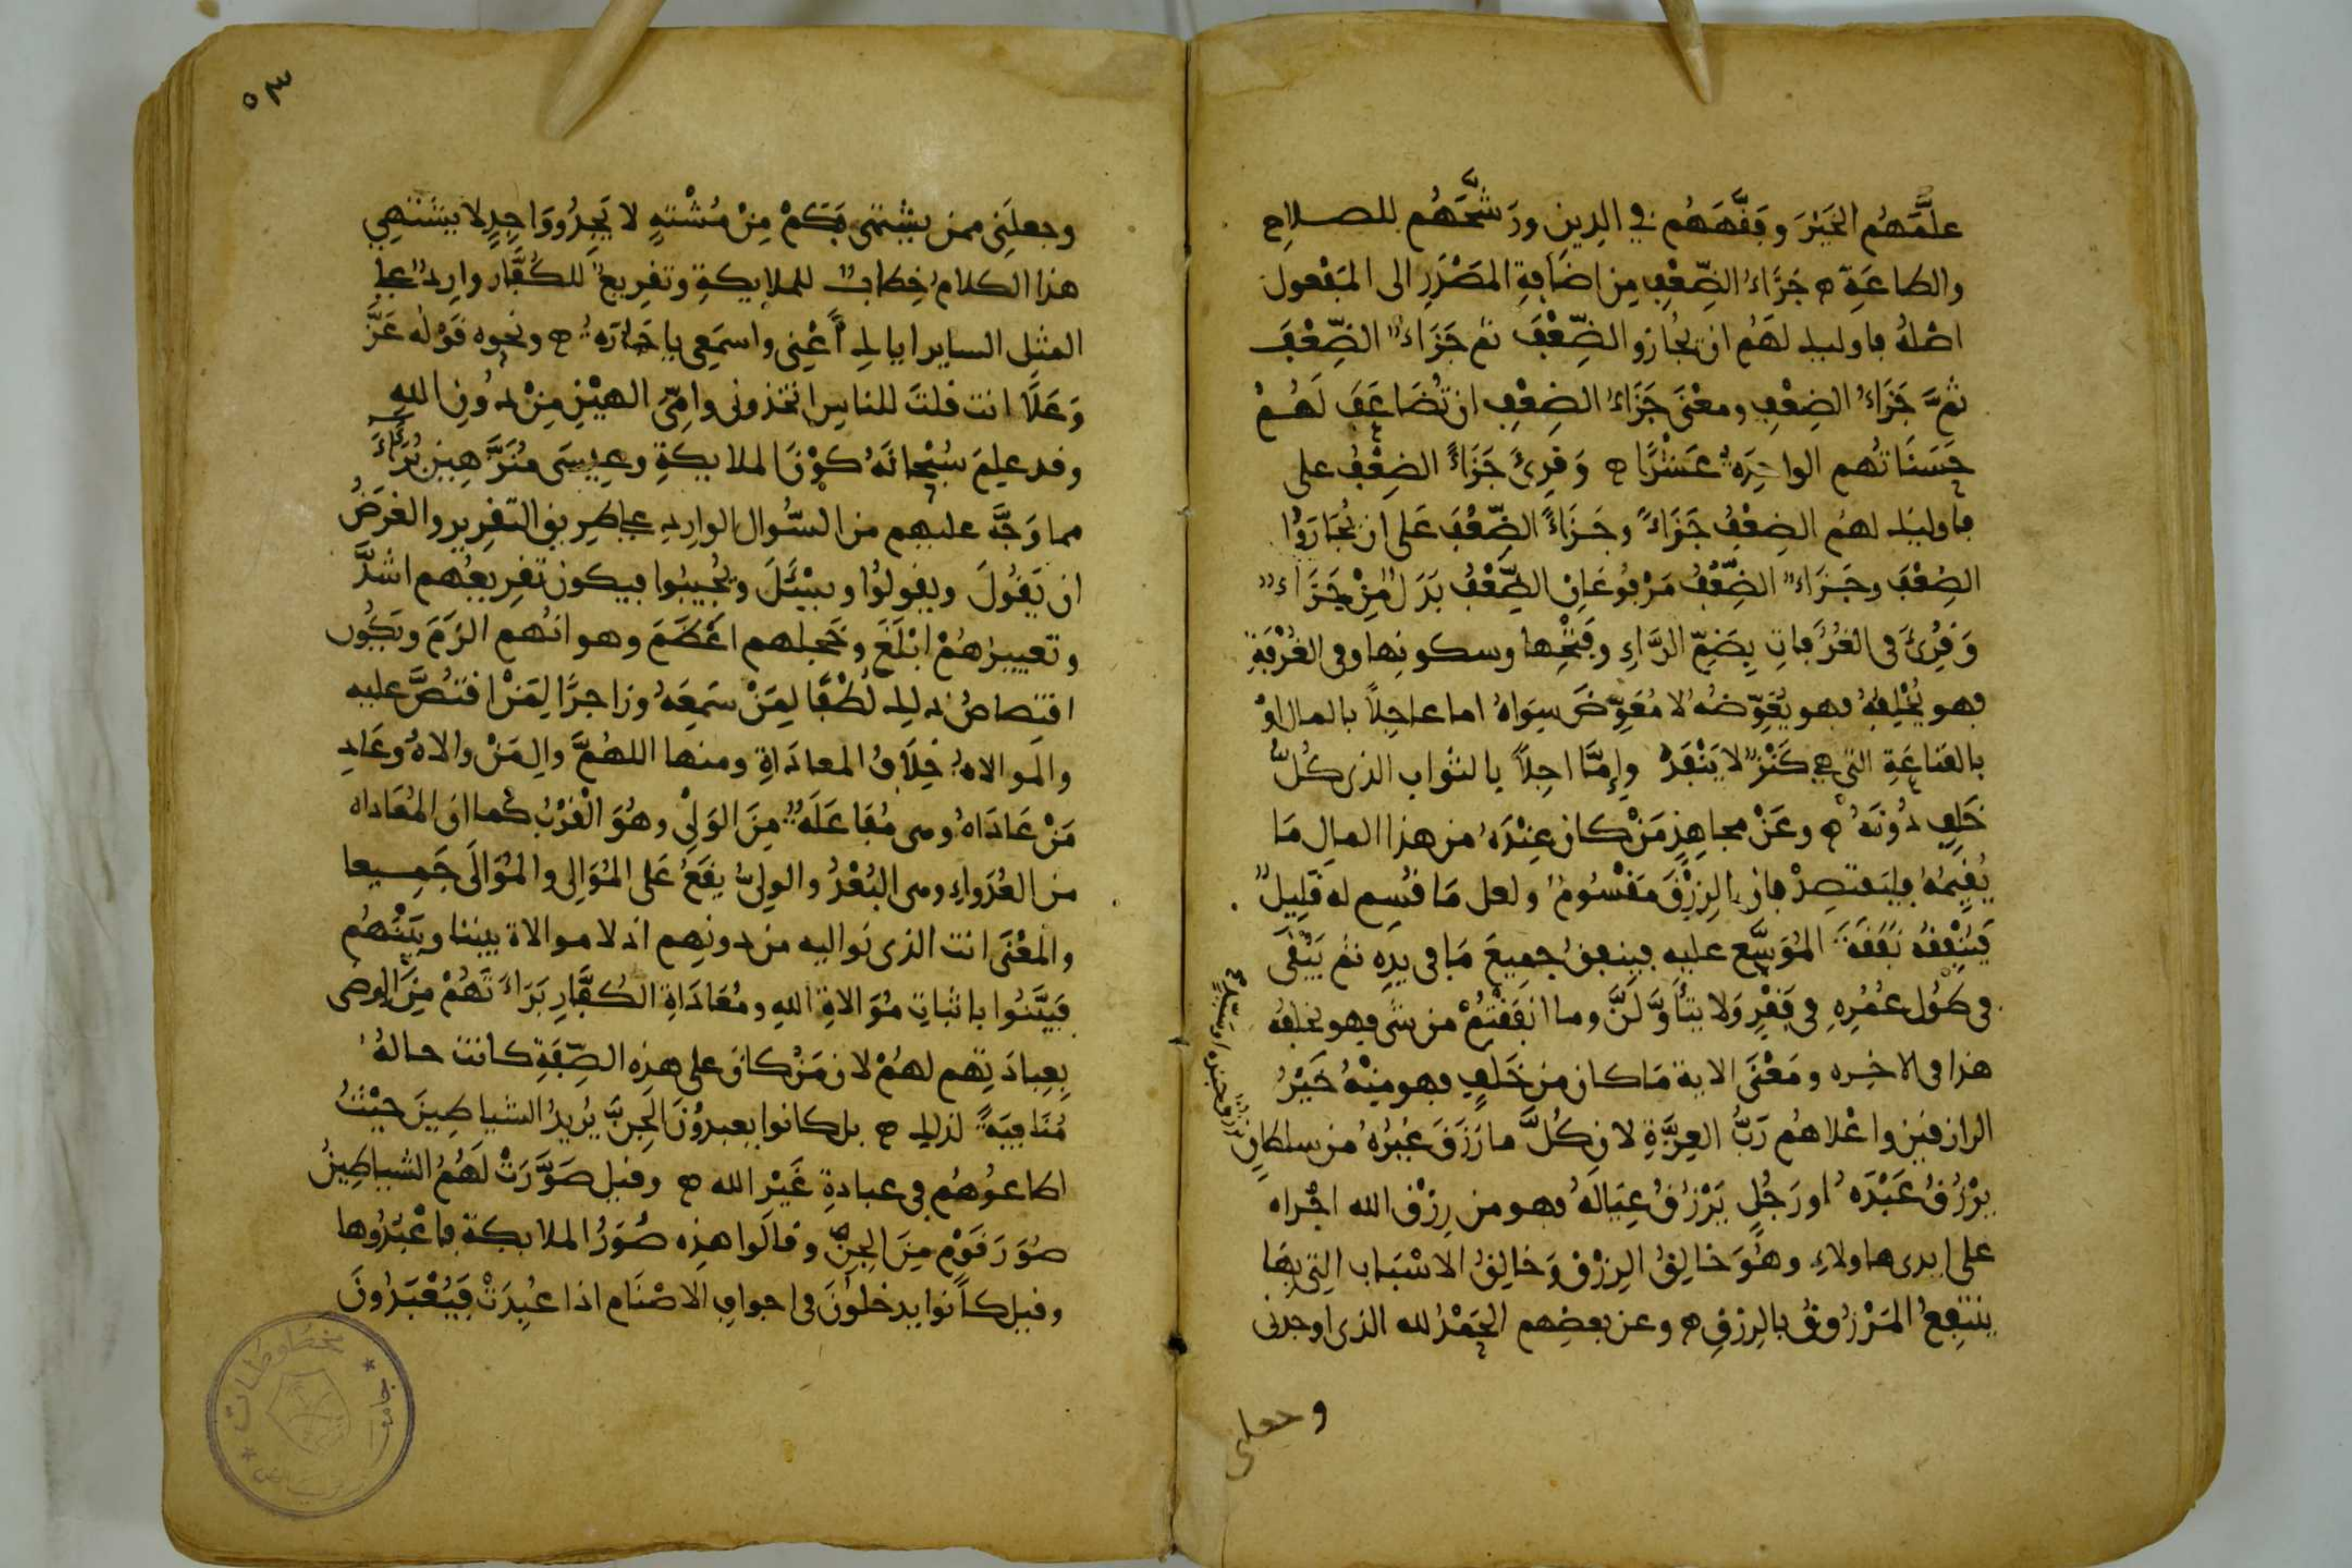 علَّمَهُم الخَيْرَ وفَقَّهَهُم في الدِين ورَشَّحَهُم للصلاح
والطاعَةِ ه جَزَاءُ الضِّعْفِ مِن اضَافةِ المَصْدَرِ الى المَفْعول
اصْلهُ فاوليك لهَمُ ان يُجَازو الضِّعْفَ ثم جَزَاءٌ الضِّعْفَ
ثمَّ جَزَاءُ الضِعْفِ ومعْنَى جَزَاءُ الضِعْفِ ان تُضَاعَفَ لَهُمْ
حَسَنَاتُهم الواحِدَةُ عَشْرًا ه وَقرِئَ جَزَاءً الضِعْفُ على
فاوليَك لهمُ الضِعْفُ جَزَاءً وجَزَاءً الضِّعْفَ عَلى ان يُجَازَوْا
الضِعْفَ وجَزَاءٌ الضِّعْفُ مَرْفُوعَانِ الضِّعْفُ بَدَلٌ مِنْ جَزَاءٌ
وَقُرِئَ فى الغُرُفَاتِ بِضَمِّ الرَّاءِ وفَتْحِها وسكونِها وفى الغُرْفَةِ
فهو يُخْلِفُهُ فهو يُعَوِّضهُ لا مُعَوِّضَ سِوَاهُ اما عاجِلاً بالمال اوْ
بالقناعَةِ التى هى كَنْزٌ لا يَنْفَدُ وإمَّا اجِلاً بالثواب الذى كُلُّ
خَلَفٍ دُونَهُ ه وعَنْ مجاهِدٍ مَنْ كان عِنْدَهُ من هذا المالِ مَا
يُقِيمُهُ فليَقتصِدْ فان الرِزْقَ مَقْسُومٌ ولعل مَا قُسِم له قَلِيلٌ
فَيُنْفِقُ نَفَقَةَ المُوَسَّع عليه فينفقُ جمِيعَ مَا فى يَدِه ثم يَبْقَى
فى طُول عُمُرِهِ فى فَقْرٍ وَلا يتأوَّلَنَّ وما انفَقْتُمْ من شَى فهو يخلفُه
هذا فى الاخِره ومَعْنَى الاية مَا كان من خَلَفٍ فهو مِنْهُ خَيْرُ
الرازقين واعْلاهُم رَبُّ العِزَّةِ لان كُلَّ ما رَزَقَ غيرُهُ من سلطانٍ
يرْزُقُ جنده او سيدٍ
يرْزُقُ عَبْدَهُ او رَجُلٍ يَرْزُقُ عِيَالَهُ فهو من رِزْقِ الله اجْراه
على ايدى هاولاءِ وهُوَ خالِقُ الرِزْقِ وَخَالِقُ الاسْبَاب التِى بهَا
ينتفِعُ المَرْزُوقُ بالرزقِ ه وعن بعضِهم الحَمْدُ لله الذى اوجدنى
وجعلنى
٥٣
وجعلَنِى ممن يشتهى فكَمْ مِنْ مُشْتهٍ لا يَجِدُ ووَاجِدٍ لا يشتَهِي
هذا الكلامُ خِطابٌ للملايكةِ وتقرِيعٌ للكُفَّار وارِدٌ على
المثلِ السايرِ اياكِ أعْنِى واسمَعِى ياجَارَه ه ونحوه قَوْلُه عَزَّ
وَعَلَا انت قلتَ للناسِ اتخذونى وامِّى الهيْنِ مِنْ دُونِ اللهِ
وقد علِمَ سُبْحانَهُ كوْنَ الملايكةِ وعِيسَى مُنَزَّهِينَ بُرَءَاءَ
مما وَجَّهَ عليهِم من السُّوال الوارِدِ على طرِيق التقرِيرِ والغرَضُ
ان يَقُولَ ويقولوُا ويسْئَلَ ويُجِيبُوا فيكون تقرِيعُهم اشدَّ
وتعييرهُمْ ابْلَغَ وخَجلهم اعْظَمَ وهوانُهم الزَمَ ويكُون
اقتِصاصُ ذلك لُطْفًا لِمَنْ سَمِعَهُ وزاجرًا لِمَنْ اقتُصَّ عليه
والمَوالاهُ خِلَافُ المعادَاةِ ومنها اللهُمَّ والِ مَنْ والاهُ وعَادِ
مَنْ عَادَاهُ وهى مُفَاعَلَهٌ مِنَ الوَلْىِ وهُوَ القُرْبُ كما ان المُعَاداه
من العُدَواءِ وهى البُعْدُ والوِلىُّ يقَعُ عَلى المُوَالِى والمُوَالَى جَمِيعا
والمَعْنَى انت الذى نوالِيه من دونِهِم اذ لا موالاة بيننا وبَيْنهُم
فبَيَّنوُا باثباتِ مُوَالاةِ اللهِ ومُعَادَاةِ الكُفَّارِ بَرَاءَتَهُمْ مِنَ الرضى
بِعِبادَتِهم لهُمْ لان مَنْ كان على هذِه الصِّفَةِ كانت حالهُ
مُنَافِيَةً لذلك ه بل كانوا يعبدوُنَ الجِنَّ يُرِيدُ الشياطِينَ حيْثُ
اطاعوُهُم فى عبادةِ غَيْرِ الله ه وقيل صَوَّرَتْ لَهُمُ الشياطِينُ
صُوَرَ قَوْمٍ مِنَ الجِنِّ وقالَوا هذِه صُوَرُ الملايكةِ فاعْبُدُوها
وقيل كَانوا يدخلوُنَ فى اجوافِ الاصْنَام اذا عُبِدَتْ فَيُعْبَدُونَ